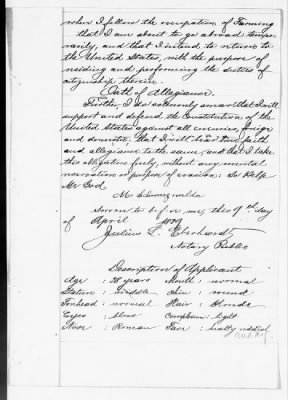 where I follow the occupation of Farming
that I am about to go abroad tempo-
rarily, and that I intend to return to
the United States, with the purpose of
residing and performing the duties of
citizenship therein.
Oath of Allegiance.
Further, I do solemnly swear that I will
support and defend the Constitution of the
United States against all enemies, foreign
and domestic, that I will bear true faith
and allegiance to the same, and that I take
this obligation freely, without any mental
reservation or purpose of evasion: So Help
Me God
Sworn to before me, this 9th day
of April 1889
Julius L. Eberhardt
Notary Public
Description of Applicant
Age : 38 years Mouth : normal
Stature : middle Chin : round
Forehead : normal Hair : blonde
Eyes : blue Complexion : light
Nose : Roman Face :